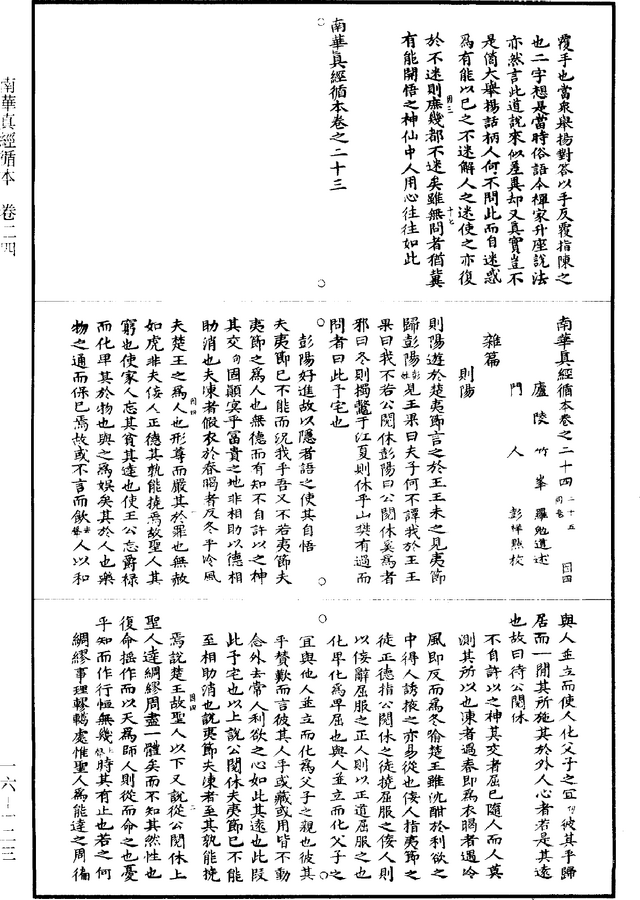 覆手也當衆舉揚對答以手反覆指陳之
也二字想是當時俗語今禪家升座說法
亦然言此道說來似差異却又真實豈不
是箇大舉揚話柄人何不問此而自迷惑
爲有能以已之不迷解人之迷使之亦復
於不迷則庶幾都不迷矣雖無問者猶冀
有能開悟之神仙中人用心往往如此
南華真經循本卷之二十三
南華真經循本卷之二十四 二十五同卷 因四
廬陵竹峯羅勉道述
門人彭祥點校
雜篇
則陽
則陽遊於楚夷節言之於王王未之見夷節
歸彭陽見王果曰夫子何不譚我於王王
果曰我不若公閱休彭陽曰公閱休奚爲者
邪曰冬則擉鼈于江夏則休乎山樊有過而
問者曰此予宅也
彭陽好進故以隱者語之使其自悟
夫夷節已不能而況我乎吾又不若夷節夫
夷節之爲人也無德而有知不自許以之神
其交固顛冥乎富貴之地非相助以德相
助消也夫凍者假衣於春暍者反冬乎冷風
夫楚王之爲人也形尊而嚴其於罪也無赦
如虎非夫佞人正德其孰能撓焉故聖人其
窮也使家人忘其貧其達也使王公忘爵祿
而化卑其於物也與之爲娛矣其於人也樂
物之通而保己焉故或不言而飲人以和
與人並立而使人化父子之宜彼其乎歸
居而一閒其所施其於外人心者若是其遠
也故曰待公閱休
不自許以之神其交者屈已隨人而人莫
測其所以也凍者遇春即爲衣暍者遇冷
風即反而爲冬喻楚王雖沈酣於利欲之
中得人誘掖之亦易從也佞人指夷節之
徒正德指公閱休之徒撓屈服之佞人則
以佞辭屈服之正人則以正道屈服之也
化卑化爲卑屈也與人並立而化父子之
宜與他人並立而化爲父子之親也彼其
乎贊歎而言彼其人乎或藏或用皆不動
念外去常人利欲之心如此其遠也此段
此予宅也以上說公閱休夫夷節已不能
至相助消也說夷節夫凍者至其孰能撓
焉說楚王故聖人以下又說從公閱休上
聖人達綢繆周盡一體矣而不知其然性也
復命搖作而以天爲師人則從而命之也憂
乎知而作行恒無幾時其有止也若之何
綢繆事理轇轕處惟聖人爲能達之周徧
南華真經循本 卷二四
一六－一二三